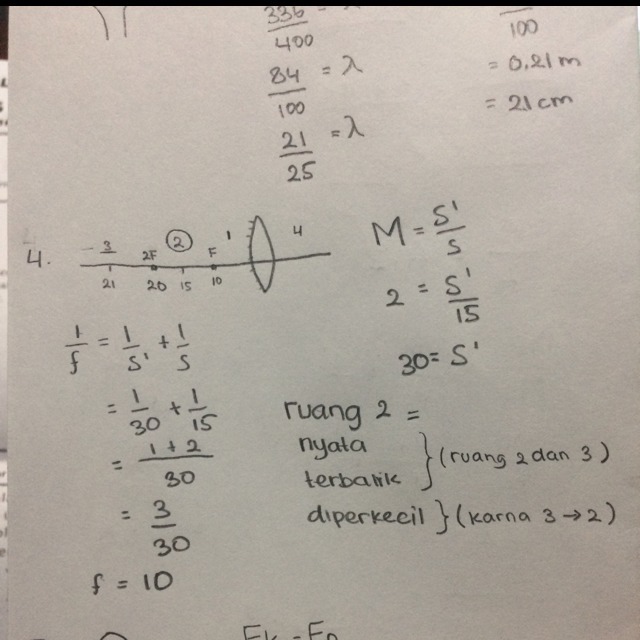 336
400
84/100 = λ
21/25 = λ
100
= 0,21 m
= 21 cm
4.
3 2F ② F 1 4
21 20 15 10
1/f = 1/s' + 1/s
= 1/30 + 1/15
= 1+2/30
= 3/30
f = 10
M = s'/s
2 = s'/15
30 = s'
ruang 2 =
nyata
terbalik } (ruang 2 dan 3)
diperkecil } (karna 3 → 2)